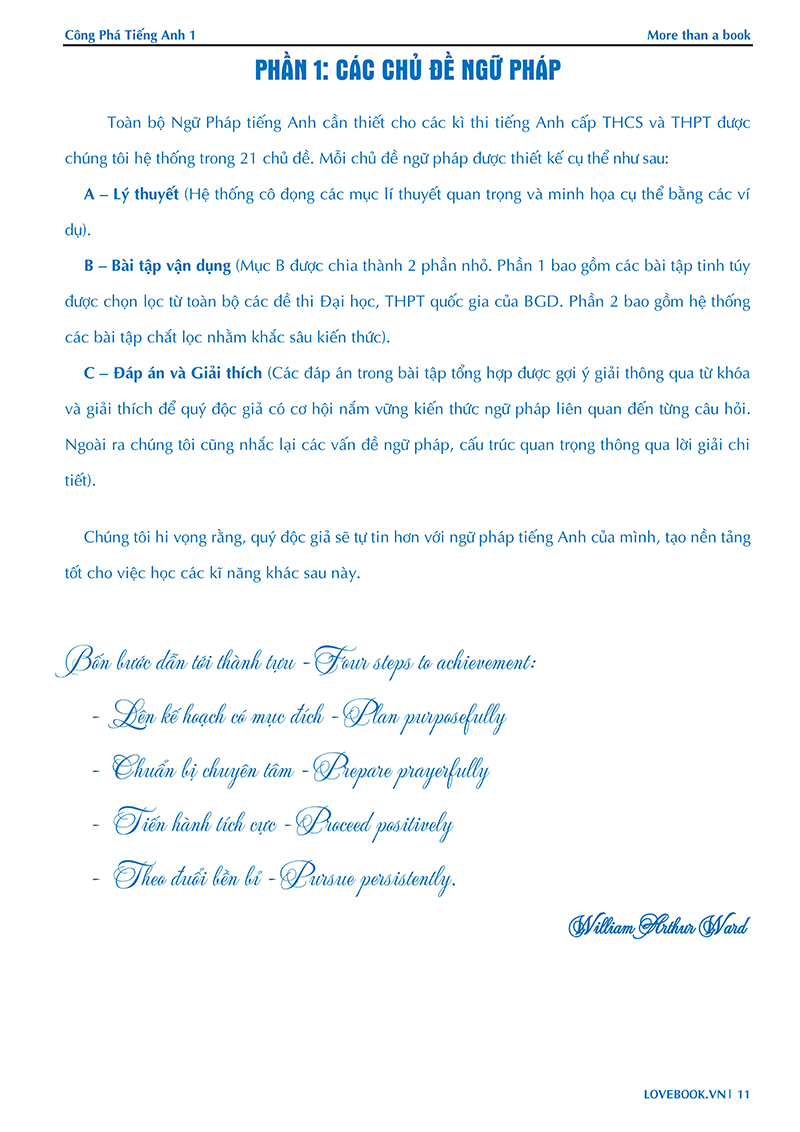 Công Phá Tiếng Anh 1 More than a book
PHẦN 1: CÁC CHỦ ĐỀ NGỮ PHÁP
Toàn bộ Ngữ Pháp tiếng Anh cần thiết cho các kì thi tiếng Anh cấp THCS và THPT được
chúng tôi hệ thống trong 21 chủ đề. Mỗi chủ đề ngữ pháp được thiết kế cụ thể như sau:
A – Lý thuyết (Hệ thống cô đọng các mục lí thuyết quan trọng và minh họa cụ thể bằng các ví
dụ).
B – Bài tập vận dụng (Mục B được chia thành 2 phần nhỏ. Phần 1 bao gồm các bài tập tinh túy
được chọn lọc từ toàn bộ các đề thi Đại học, THPT quốc gia của BGD. Phần 2 bao gồm hệ thống
các bài tập chắt lọc nhằm khắc sâu kiến thức).
C – Đáp án và Giải thích (Các đáp án trong bài tập tổng hợp được gợi ý giải thông qua từ khóa
và giải thích để quý độc giả có cơ hội nắm vững kiến thức ngữ pháp liên quan đến từng câu hỏi.
Ngoài ra chúng tôi cũng nhắc lại các vấn đề ngữ pháp, cấu trúc quan trọng thông qua lời giải chi
tiết).
Chúng tôi hi vọng rằng, quý độc giả sẽ tự tin hơn với ngữ pháp tiếng Anh của mình, tạo nền tảng
tốt cho việc học các kĩ năng khác sau này.
Bốn bước dẫn tới thành tựu - Four steps to achievement:
- Lên kế hoạch có mục đích - Plan purposefully
- Chuẩn bị chuyên tâm - Prepare prayerfully
- Tiến hành tích cực - Proceed positively
- Theo đuổi bền bỉ - Pursue persistently.
William Arthur Ward
LOVEBOOK.VN| 11